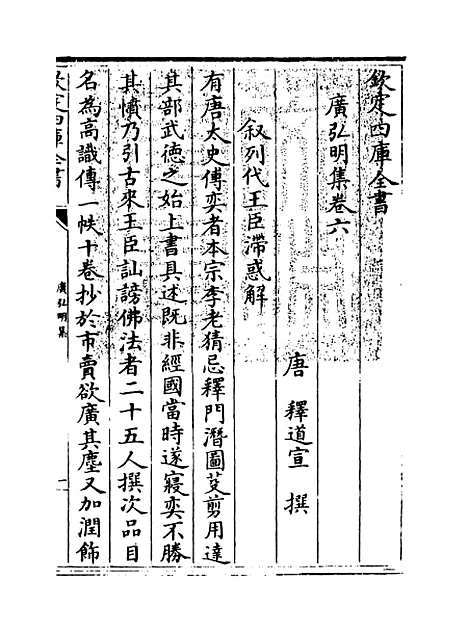 欽定四庫全書
廣弘明集卷六
唐 釋道宣 撰
叙列代王臣滯惑解
有唐太史傅奕者本宗李老猜忌釋門潛圖芟剪用達
其部武徳之始上書具述既非經國當時遂寢奕不勝
其憤乃引古來王臣訕謗佛法者二十五人撰次品目
名為高識傳一帙十卷抄於市賣欲廣其塵又加潤飾
欽定四庫全書
廣弘明集
一